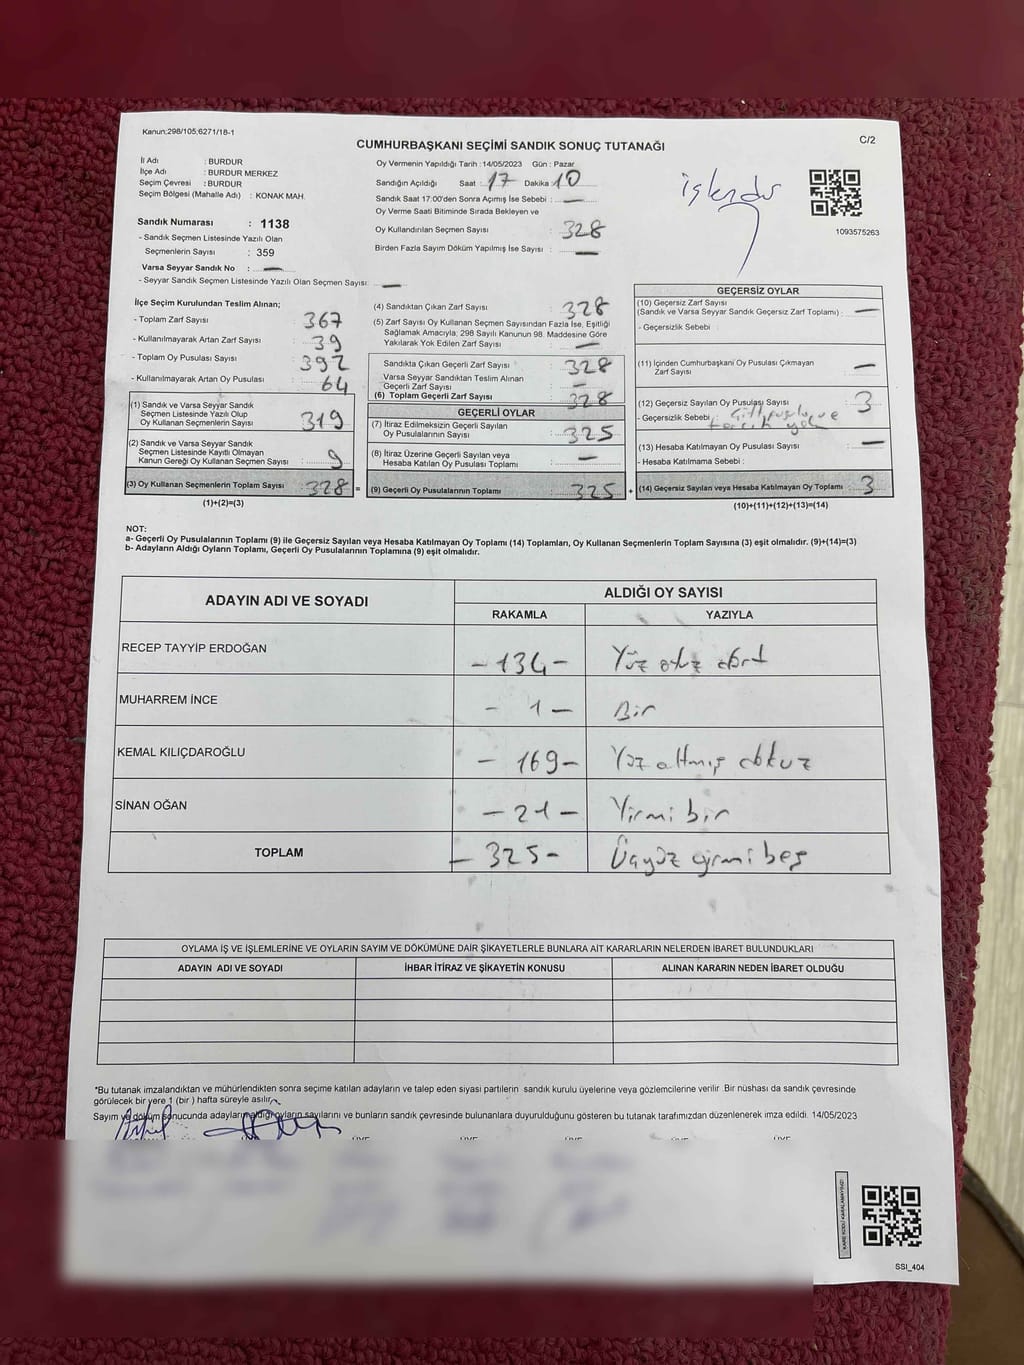 Kanun;298/105;6271/18-1
C/2
CUMHURBAŞKANI SEÇİMİ SANDIK SONUÇ TUTANAĞI
İl Adı : BURDUR
İlçe Adı : BURDUR MERKEZ
Seçim Çevresi : BURDUR
Seçim Bölgesi (Mahalle Adı) : KONAK MAH.
Sandık Numarası : 1138
- Sandık Seçmen Listesinde Yazılı Olan
Seçmenlerin Sayısı : 359
Varsa Seyyar Sandık No : —
- Seyyar Sandık Seçmen Listesinde Yazılı Olan Seçmen Sayısı: —
Oy Vermenin Yapıldığı Tarih : 14/05/2023 Gün : Pazar
Sandığın Açıldığı Saat : 17 Dakika 10
Sandık Saat 17:00'den Sonra Açımış İse Sebebi : —
Oy Verme Saati Bitiminde Sırada Bekleyen ve
Oy Kullandırılan Seçmen Sayısı : 328
Birden Fazla Sayım Döküm Yapılmış İse Sayısı : —
1093575263
İlçe Seçim Kurulundan Teslim Alınan;
- Toplam Zarf Sayısı : 367
- Kullanılmayarak Artan Zarf Sayısı : 39
- Toplam Oy Pusulası Sayısı : 392
- Kullanılmayarak Artan Oy Pusulası : 64
(1) Sandık ve Varsa Seyyar Sandık
Seçmen Listesinde Yazılı Olup
Oy Kullanan Seçmenlerin Sayısı : 319
(2) Sandık ve Varsa Seyyar Sandık
Seçmen Listesinde Kayıtlı Olmayan
Kanun Gereği Oy Kullanan Seçmen Sayısı : 9
(3) Oy Kullanan Seçmenlerin Toplam Sayısı : 328 =
(1)+(2)=(3)
(4) Sandıktan Çıkan Zarf Sayısı : 328
(5) Zarf Sayısı Oy Kullanan Seçmen Sayısından Fazla İse, Eşitliği
Sağlamak Amacıyla; 298 Sayılı Kanunun 98. Maddesine Göre
Yakılarak Yok Edilen Zarf Sayısı : —
Sandıkta Çıkan Geçerli Zarf Sayısı : 328
Varsa Seyyar Sandıktan Teslim Alınan
Geçerli Zarf Sayısı : —
(6) Toplam Geçerli Zarf Sayısı : 328
GEÇERLİ OYLAR
(7) İtiraz Edilmeksizin Geçerli Sayılan
Oy Pusulalarının Sayısı : 325
(8) İtiraz Üzerine Geçerli Sayılan veya
Hesaba Katılan Oy Pusulası Toplamı : —
(9) Geçerli Oy Pusulalarının Toplamı : 325 +
GEÇERSİZ OYLAR
(10) Geçersiz Zarf Sayısı
(Sandık ve Varsa Seyyar Sandık Geçersiz Zarf Toplamı) : —
- Geçersizlik Sebebi :
(11) İçinden Cumhurbaşkanı Oy Pusulası Çıkmayan
Zarf Sayısı : —
(12) Geçersiz Sayılan Oy Pusulası Sayısı : 3
- Geçersizlik Sebebi :
(13) Hesaba Katılmayan Oy Pusulası Sayısı : —
- Hesaba Katılmama Sebebi :
(14) Geçersiz Sayılan veya Hesaba Katılmayan Oy Toplamı : 3
(10)+(11)+(12)+(13)=(14)
NOT:
a- Geçerli Oy Pusulalarının Toplamı (9) ile Geçersiz Sayılan veya Hesaba Katılmayan Oy Toplamı (14) Toplamları, Oy Kullanan Seçmenlerin Toplam Sayısına (3) eşit olmalıdır. (9)+(14)=(3)
b- Adayların Aldığı Oyların Toplamı, Geçerli Oy Pusulalarının Toplamına (9) eşit olmalıdır.
ADAYIN ADI VE SOYADI
ALDIĞI OY SAYISI
RAKAMLA YAZIYLA
RECEP TAYYİP ERDOĞAN -134- Yüz otuz dört
MUHARREM İNCE - 1 - Bir
KEMAL KILIÇDAROĞLU - 169- Yüz altmış dokuz
SİNAN OĞAN - 21 - Yirmi bir
TOPLAM - 325- Üçyüz yirmi beş
OYLAMA İŞ VE İŞLEMLERİNE VE OYLARIN SAYIM VE DÖKÜMÜNE DAİR ŞİKAYETLERLE BUNLARA AİT KARARLARIN NELERDEN İBARET BULUNDUKLARI
ADAYIN ADI VE SOYADI İHBAR İTİRAZ VE ŞİKAYETİN KONUSU ALINAN KARARIN NEDEN İBARET OLDUĞU
*Bu tutanak imzalandıktan ve mühürlendikten sonra seçime katılan adayların ve talep eden siyasi partilerin sandık kurulu üyelerine veya gözlemcilerine verilir. Bir nüshası da sandık çevresinde
görülecek bir yere 1 (bir ) hafta süreyle asılır.
Sayım ve döküm sonucunda adayların aldığı oyların sayılarını ve bunların sandık çevresinde bulunanlara duyurulduğunu gösteren bu tutanak tarafımızdan düzenlenerek imza edildi. 14/05/2023
KARE KODU KARALAMAYINIZ!
SSI_404